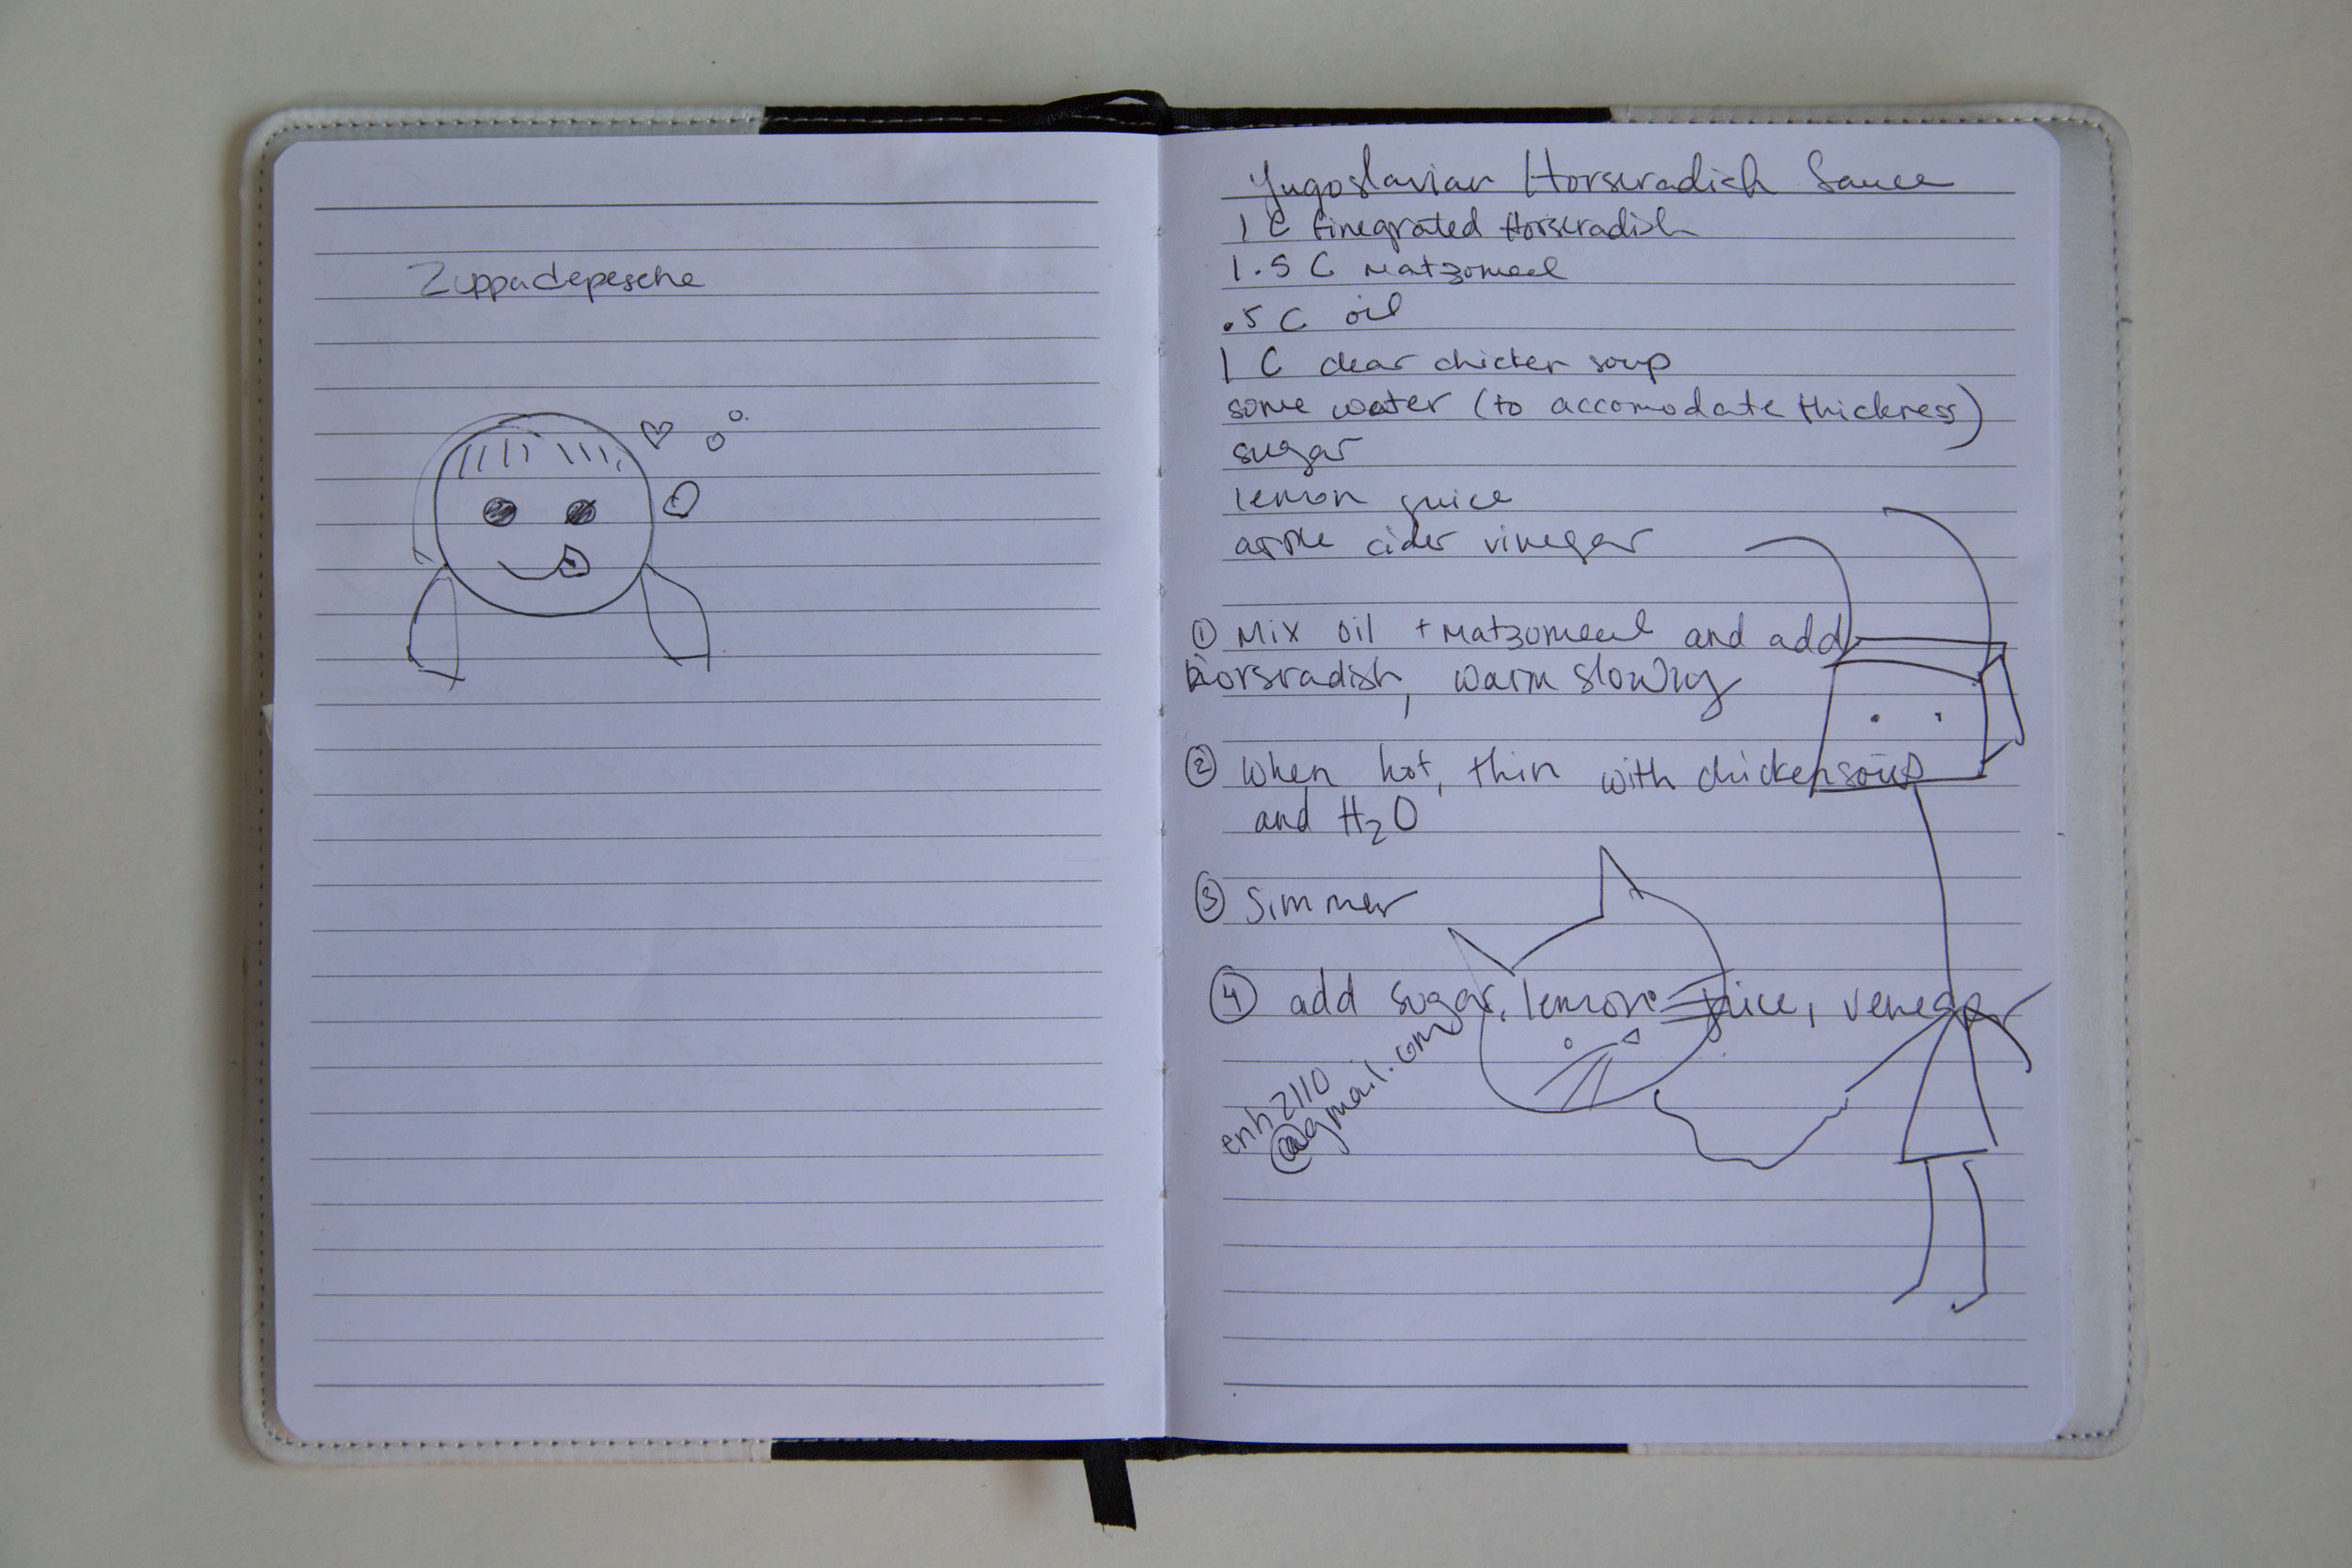 Zuppadepesche
Yugoslavian Horseradish Sauce
1 C finegrated Horseradish
1.5 C Matzomeal
.5 C oil
1 C clear chicken soup
some water (to accomodate thickness)
sugar
lemon juice
apple cider vinegar
① Mix oil + Matzomeal and add
horsradish, warm slowly
② When hot, thin with chicken soup
and H₂O
③ Simmer
④ add sugar, lemon juice, venegar
enh2110
@gmail.com